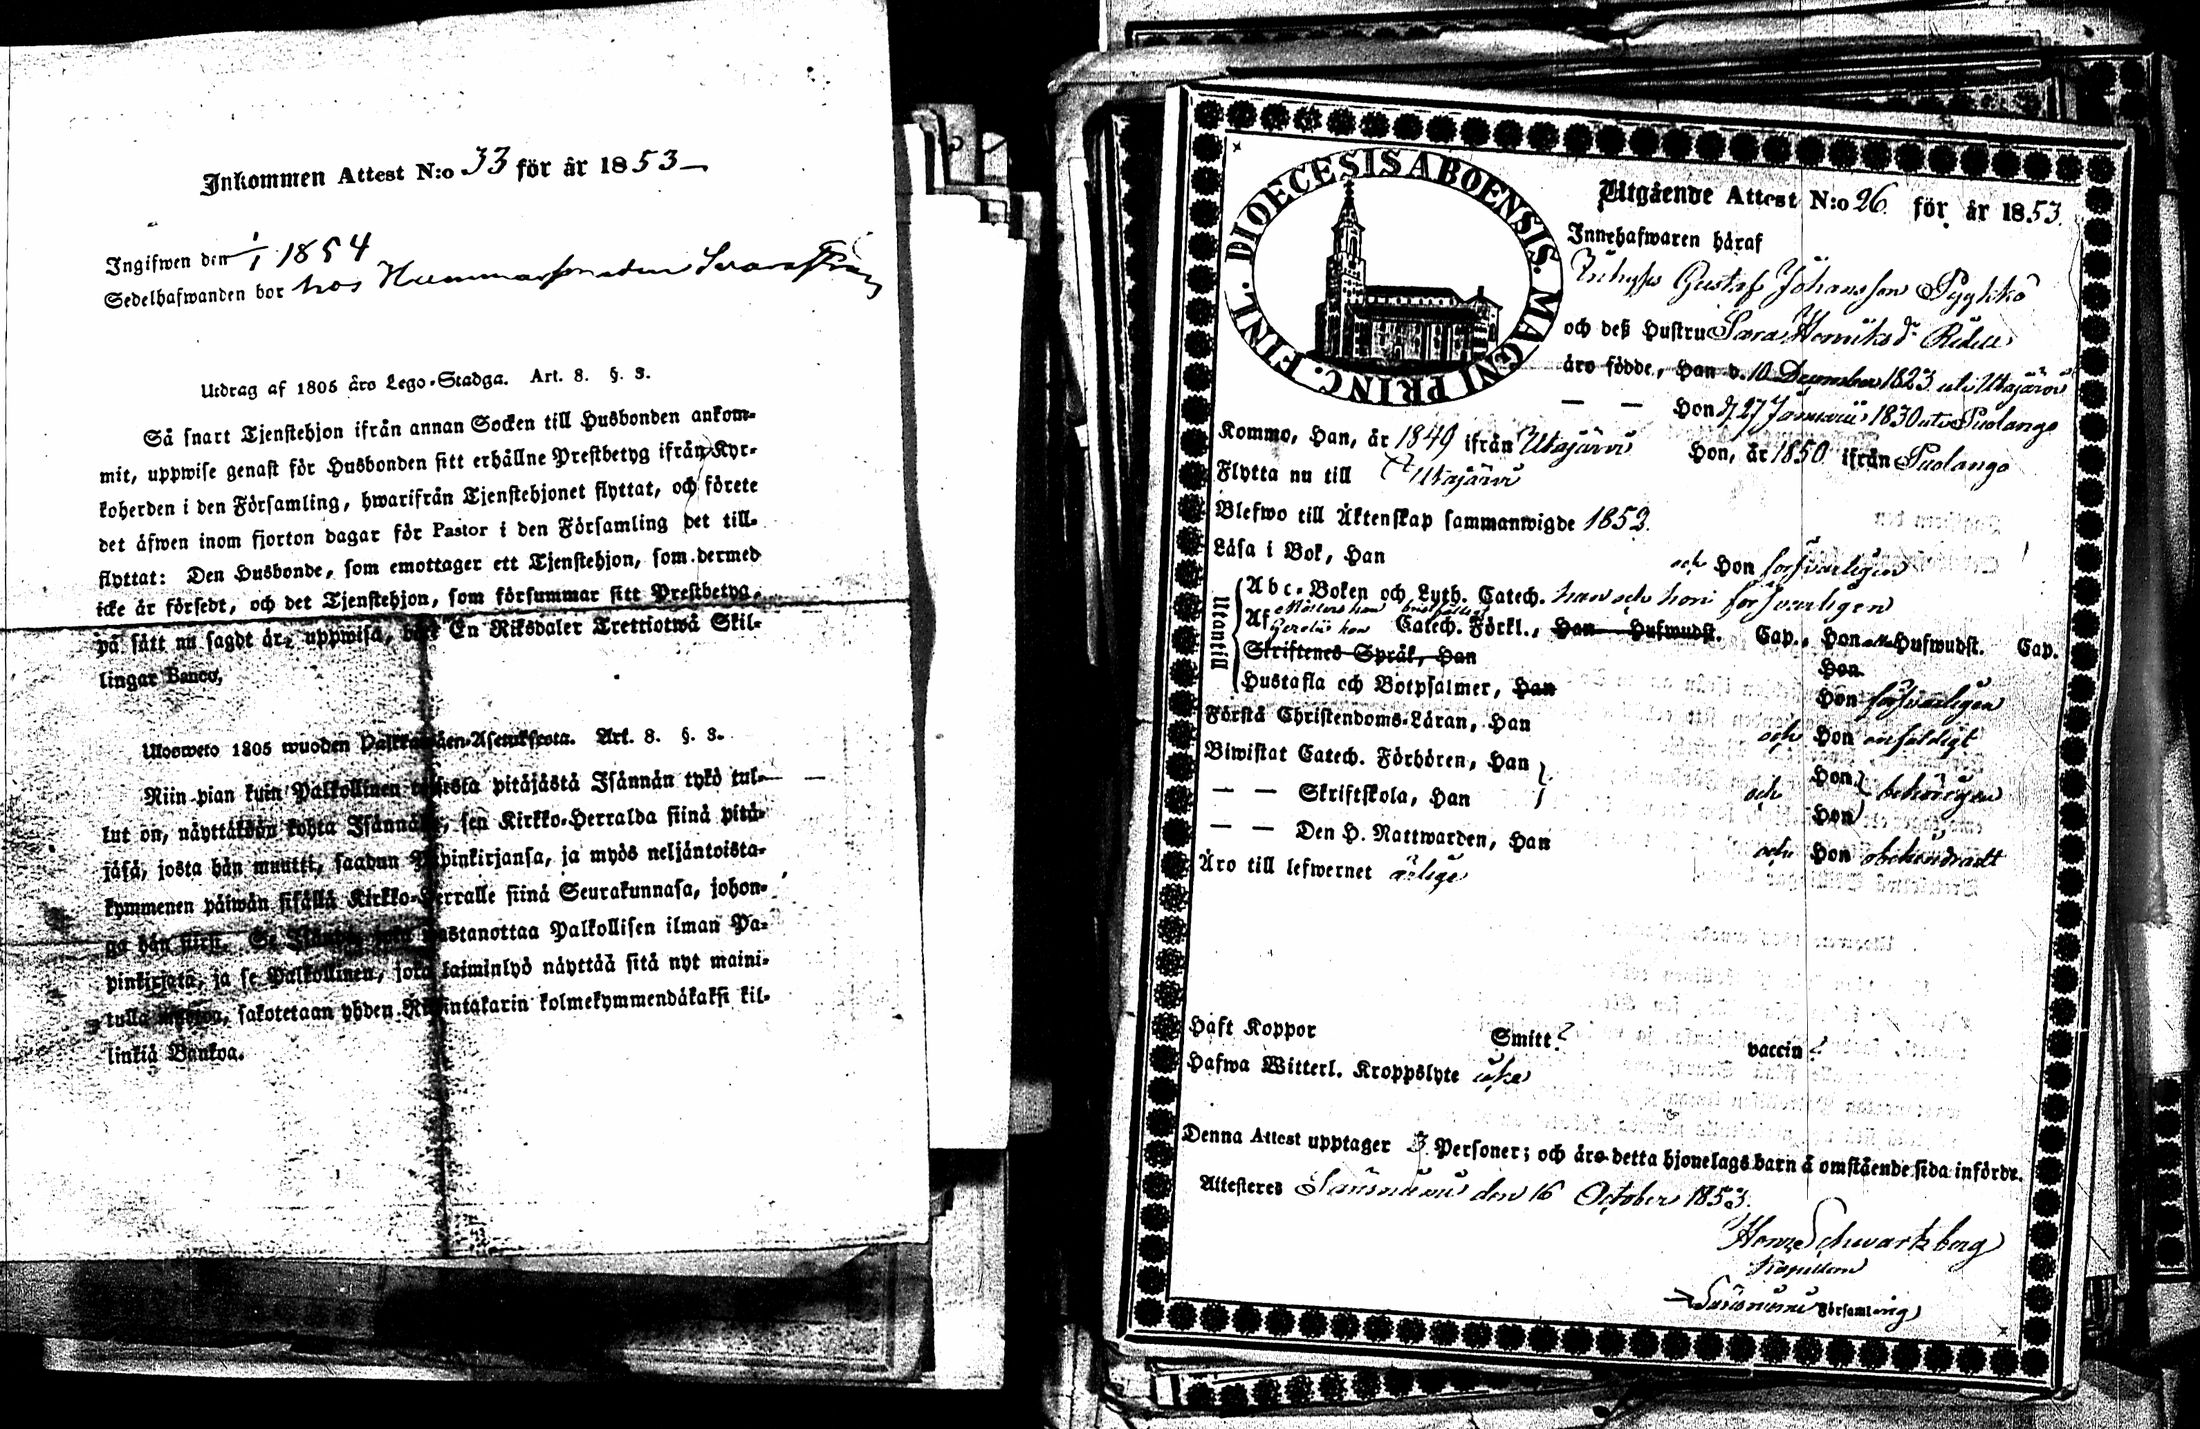 Inkommen Attest N:o 33 för år 1853
Ingifwen den 1/1 1854
Sedelhafwanden bor hos
Utdrag af 1805 års Lego-Stadga. Art. 8. §. 3.
Så snart Tjenstehjon ifrån annan Socken till Husbonden ankom-
mit, uppwise genast för Husbonden sitt erhållne Prestbetyg ifrån Kyr-
koherden i den Församling, hwarifrån Tjenstehjonet flyttat, och förete
det äfwen inom fjorton dagar för Pastor i den Församling det till-
flyttat: Den Husbonde, som emottager ett Tjenstehjon, som dermed
icke är försedt, och det Tjenstehjon, som försummar sitt Prestbetyg,
på sätt nu sagdt är, uppwisa, En Riksdaler Trettiotwå Skil-
lingar Banco,
Ulosweto 1805 wuoden Art. 8. §. 3.
Niin pian kuin Palkollinen toisesta pitäjästä Isännän tykö tul-
lut on, näyttäkään kohta Isännälle, sen Kirkko-Herralda siinä pitä-
jäsä, josta hän muutti, saadun Papinkirjansa, ja myös neljäntoista-
kymmenen päiwän sisällä Kirkko-Herralle siinä Seurakunnasa, johon-
ga hän siirsi. Se Isäntä, joka wastanottaa Palkollisen ilman Pa-
pinkirjata, ja se Palkollinen, joka laiminlyö näyttää sitä nyt maini-
tulla muoton, sakotetaan yhden Riksintalarin kolmekymmendäkaksi kil-
linkiä Bankoa.
DIOECESIS ABOENSIS. MAGNI PRINC. FINL.
Utgående Attest N:o 26 för år 1853.
Innehafwaren häraf
Gustaf Johansson Pyykkö
och deß Hustru Sara Henriksdr
äro födde, Han d. 10 December 1823 uti Utajärvi
— — Hon d. 27 Januarii 1830 uti Puolango
Kommo, Han, år 1849 ifrån Utajärvi Hon, år 1850 ifrån Puolango
Flytta nu till Utajärvi
Blefwo till Äktenskap sammanwigde 1853.
Läsa i Bok, Han och Hon försvarligen
Utantill
Abc-Boken och Luth. Catech. han och hon försvarligen
Af Catech. Förkl., Han Hufwudst. Cap., Hon Hufwudst. Cap.
Skriftenes Språk, Han Hon
Hustafla och Botpsalmer, Han Hon försvarligen
Förstå Christendoms-Läran, Han och Hon enfaldigt
Biwistat Catech. Förhören, Han Hon
— — Skriftskola, Han och Hon behörigen
— — Den H. Nattwarden, Han och Hon obehindradt
Äro till lefwernet ärlige
Haft Koppor Smitt ? vaccin ?
Hafwa Witterl. Kroppslyte icke
Denna Attest upptager 3 Personer; och äro detta hjonelags barn å omstående sida införde.
Attesteres Säräisniemi den 16 October 1853.
Henr. Schwartzberg
Kapellan
Säräisniemi Församling